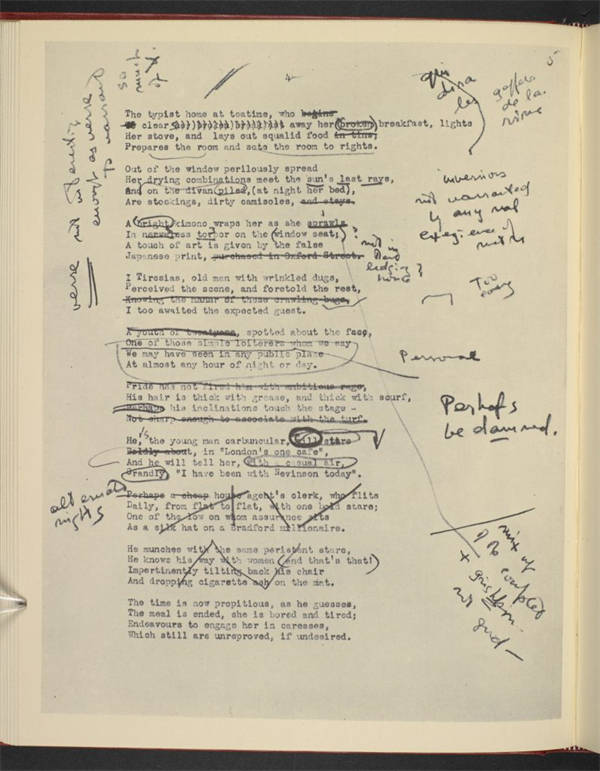 4
5
so
much
of it.
verse not interesting
enough as verse
to warrant
qui
dira
les
gaffes
de la
rime
The typist home at teatime, who begins
To clear away her broken breakfast, lights
Her stove, and lays out squalid food in tins,
Prepares the room and sets the room to rights.
Out of the window perilously spread
Her drying combinations meet the sun's last rays,
And on the divan piled, (at night her bed),
Are stockings, dirty camisoles, and stays.
inversions
not warranted
by any real
exigence of
metre
A bright kimono wraps her as she sprawls
In nerveless torpor on the window seat;
A touch of art is given by the false
Japanese print, purchased in Oxford Street.
not in
lodging
house
?
I Tiresias, old man with wrinkled dugs,
Perceived the scene, and foretold the rest,
Knowing the manner of these crawling bugs,
I too awaited the expected guest.
Too
easy
A youth of twentyone, spotted about the face,
One of those simple loiterers whom we say
We may have seen in any public place
At almost any hour of night or day.
Personal
Pride has not fired him with ambitious rage,
His hair is thick with grease, and thick with scurf,
Perhaps his inclinations touch the stage -
Not sharp enough to associate with the turf.
Perhaps
be damned.
He, the young man carbuncular, will stare
Boldly about, in "London's one cafe",
And he will tell her, with a casual air,
Grandly, "I have been with Nevinson today".
alternate
nights
Perhaps a cheap house agent's clerk, who flits
Daily, from flat to flat, with one bold stare;
One of the low on whom assurance sits
As a silk hat on a Bradford millionaire.
He munches with the same persistent stare,
He knows his way with women and that's that!
Impertinently tilting back his chair
And dropping cigarette ash on the mat.
mix of
couplet
+ grishkin
not good—
The time is now propitious, as he guesses,
The meal is ended, she is bored and tired;
Endeavours to engage her in caresses,
Which still are unreproved, if undesired.